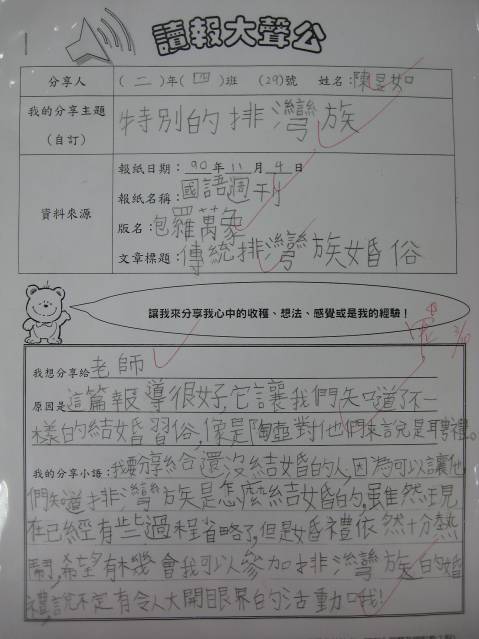 讀報大聲公
分享人 (二)年(四)班 (29)號 姓名:陳昱如
我的分享主題 (自訂) 特別的排灣族
資料來源
報紙日期:90年11月4日
報紙名稱:國語週刊
版名:包羅萬象
文章標題:傳統排灣族婚俗
讓我來分享我心中的收穫、想法、感覺或是我的經驗!
我想分享給老師
原因是這篇報導很好,它讓我們知道了不一
樣的結婚習俗,像是陶壺對他們來說是聘禮。
我的分享小語:我要分享給還沒結婚的人,因為可以讓他
們知道排灣族是怎麼結婚的,雖然現
在已經有些過程省略了,但是婚禮依然十分熱
鬧,希望有機會我可以參加排灣族的婚
禮說不定有令人大開眼界的活動哦!